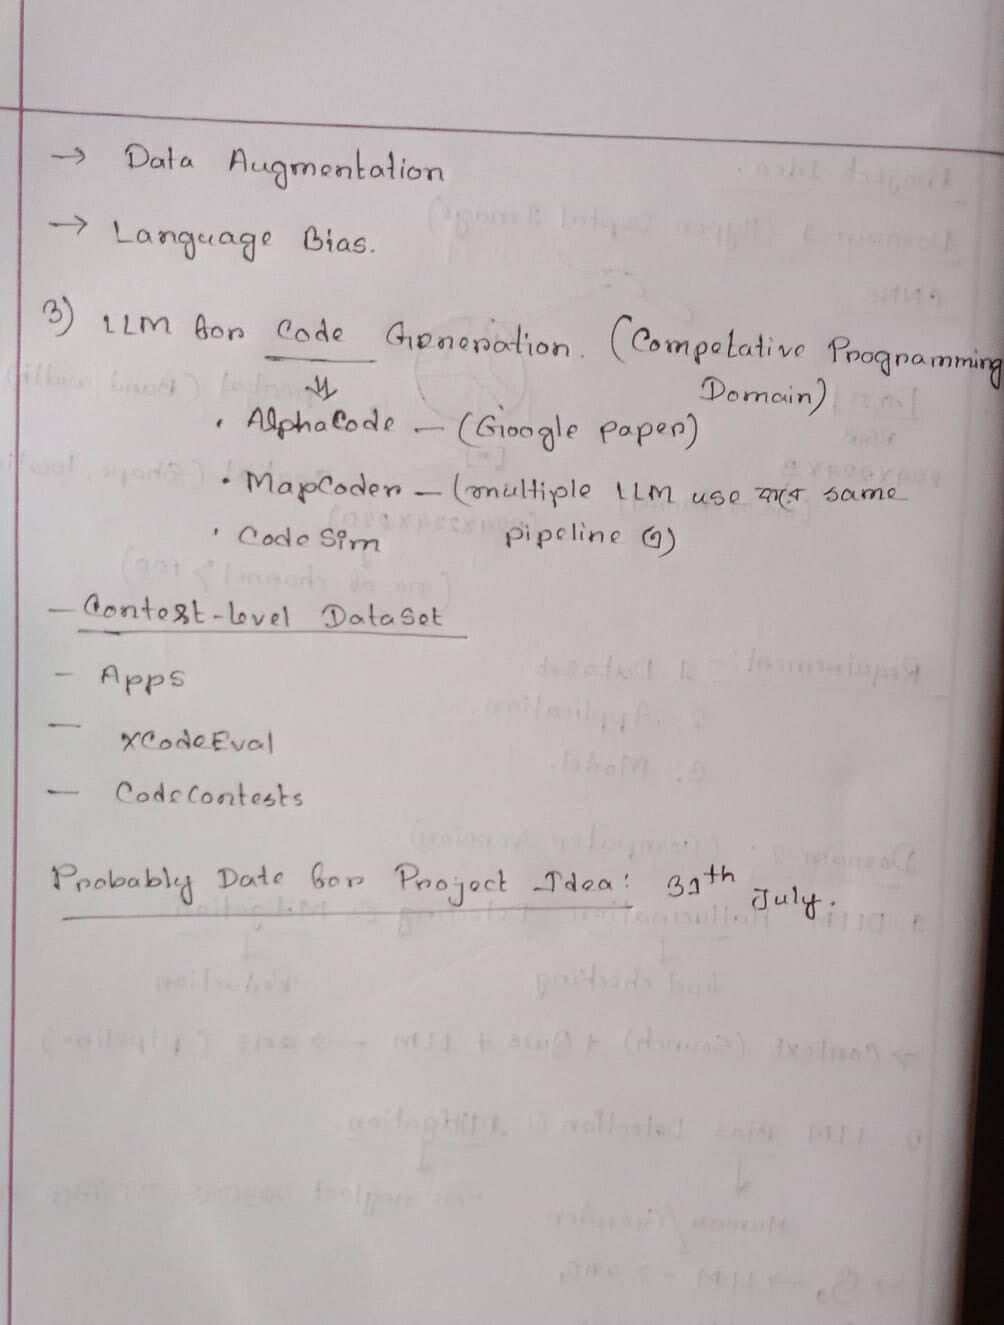 → Data Augmentation
→ Language Bias.
3) LLM for Code Generation. (Competative Programming
Domain)
• AlphaCode – (Google paper)
• MapCoder – (multiple LLM use করে same
• CodeSim pipeline এ)
– Contest-level DataSet
– Apps
– xCodeEval
– CodeContests
Probably Date for Project Idea: 31th July.